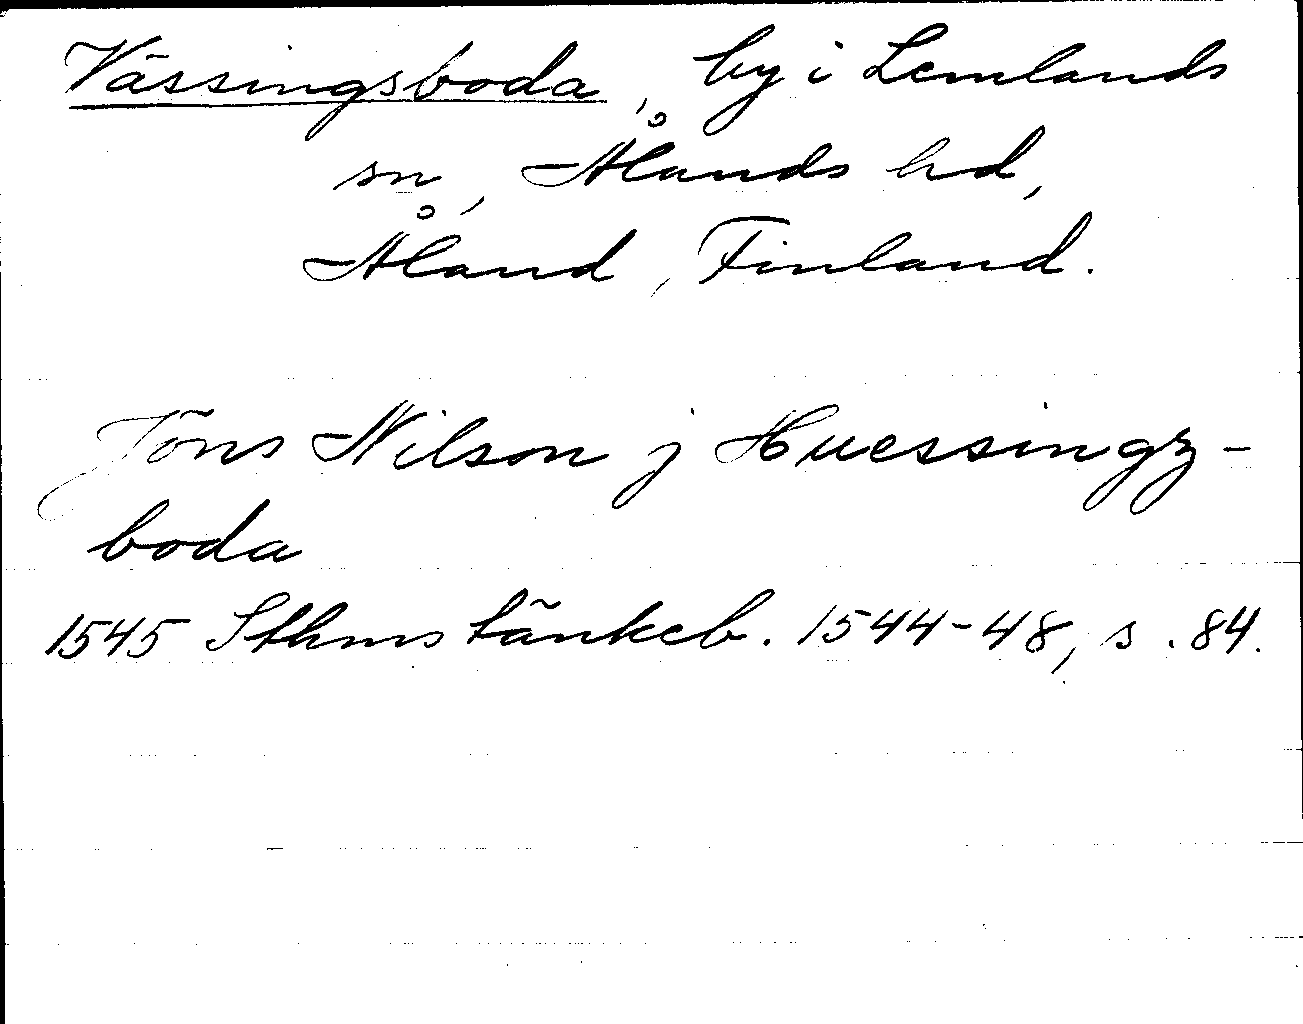 Vässingsboda, by i Lemlands
sn, Ålands hd,
Åland, Finland.
Jöns Nilson j Huessingz-
boda
1545 Sthms tänkeb. 1544-48, s. 84.